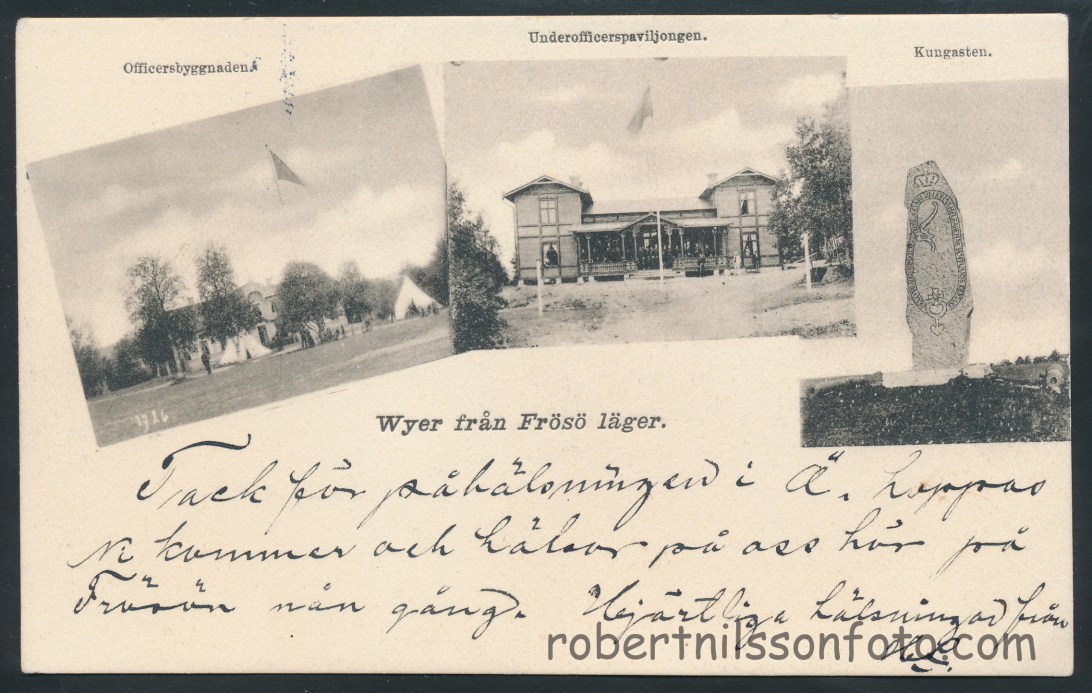 Officersbyggnaden.
Underofficerspaviljongen.
Kungasten.
1726
Wyer från Frösö läger.
Tack för påhälsningen i Ä. hoppas
Ni kommer och hälsar på oss här på
Frösön nån gång. Hjärtliga hälsningar från
robertnilssonfoto.com